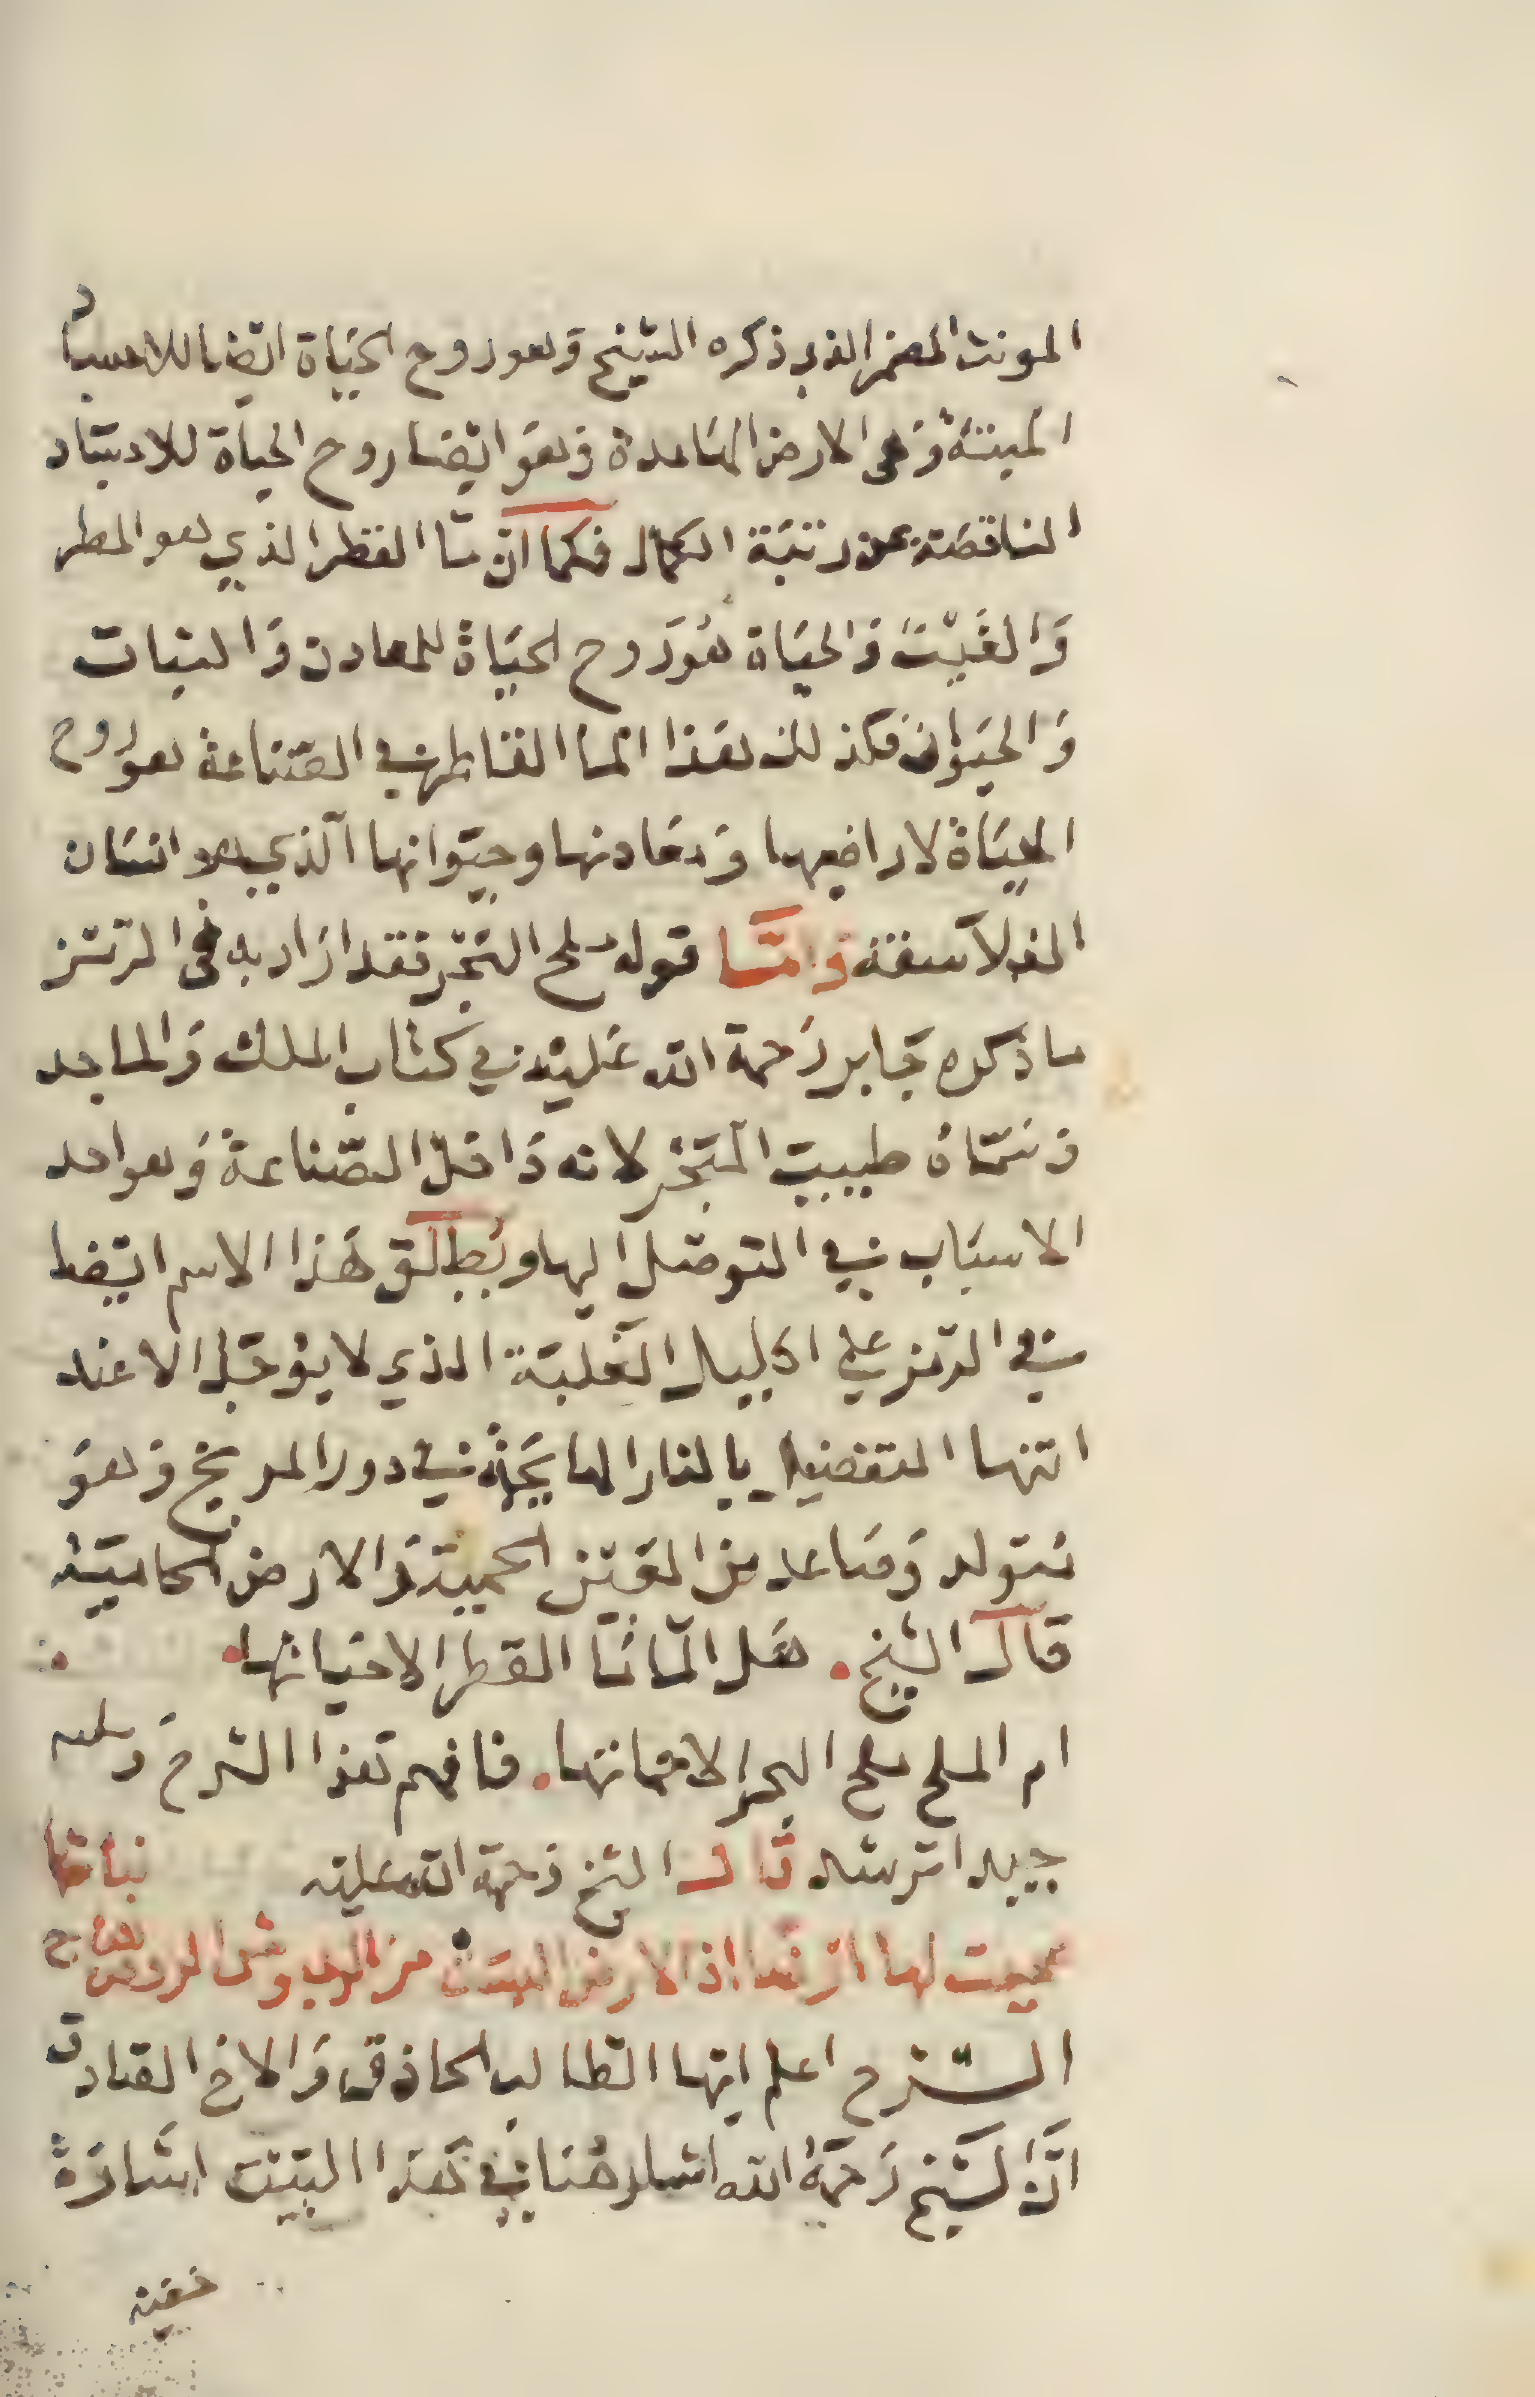 المونث المضمر الذي ذكره الشيخ وهو روح الحياة ايضا للاجساد
الميتة وهى الارض الهامدة وهو ايضا روح الحياة للاجساد
الناقصة عن رتبة الكمال فكما ان ما القطر الذي هو المطر
والغيث والحياة هو روح الحياة للمعادن والنبات
والحيوان فكذلك هذا الما القاطر في الصناعة هو روح
الحياة لاراضيها ومعادنها وحيوانها الذي هو انسان
الفلاسفة واما قوله ملح البحر فقد اراد به في الرمز
ما ذكره جابر رحمة الله عليه في كتاب الملك والماجد
وسماه طبيب البحر لانه داخل الصناعة وهو احد
الاسباب في التوصل اليها ويطلق هذا الاسم ايضا
في الرمز على اكليل الغلبة الذي لا يوجد الا عند
انتها التفضيل بالنار الهايجة في دور المريخ وهو
متولد وصاعد من العين الحمية والارض الحامية
قال الشيخ هل الما ما القطر الا حياتها
ام الملح ملح البحر الا مماتها فافهم هذا الشرح
جيدا ترشد قال الشيخ رحمة الله عليه نباتها
عجبت لها ارضا اذا الارض
الشرح اعلم ايها الطالب الحاذق والاخ الصادق
ان الشيخ رحمه الله اشار هنا في هذا البيت اشارة
خفية